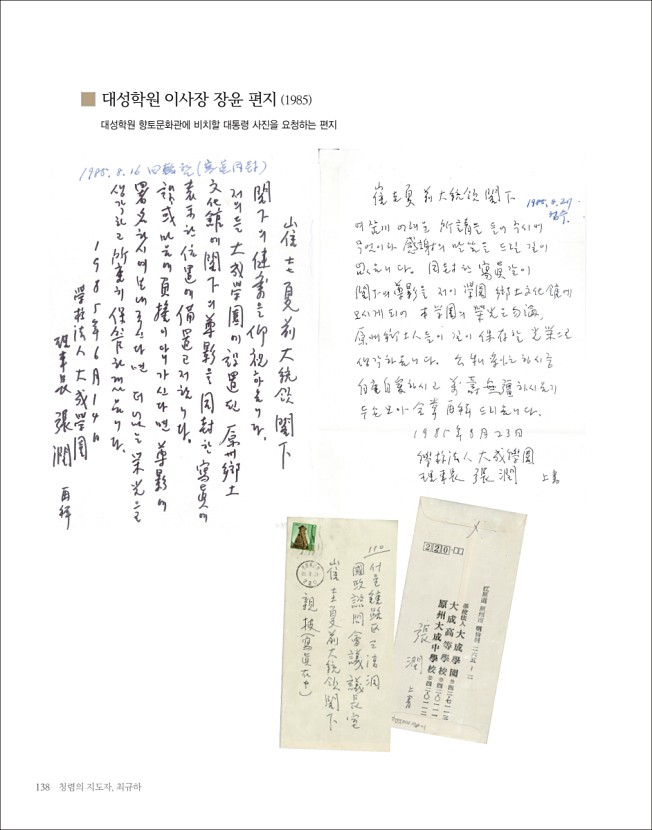 대성학원 이사장 장윤 편지 (1985)
대성학원 향토문화관에 비치할 대통령 사진을 요청하는 편지
1985. 8. 16 (寫眞同封)
崔圭夏 前大統領 閣下
閣下의 健壽를 仰祝하옵니다.
저희들 大成學園이 設置한 原州鄕土
文化館에 閣下의 尊影을 同封한 寫眞에
表示한 位置에 備置코저 합니다.
尊影에
署名하시여 보내주신다면 더없는 榮光으로
생각하고 所重히 保管하겠읍니다.
1985年 6月 14日
學校法人 大成學園
理事長 張潤 再拜
崔圭夏 前大統領 閣下
1985. 8. 27.
所請을 들어 주시어
무엇이라 感謝의 말씀을 드릴 길이
없읍니다. 同封한 寫眞같이
閣下의 尊影을 저이 學園 鄕土文化館에
모시게 되어 本 學園의 榮光은 勿論,
原州 鄕土人들이 길이 保存할 光榮으로
생각하옵니다.
自重自愛하시고 萬壽無疆하시옵기
두손 모아 드리옵니다.
1985年 8月 23日
學校法人 大成學園
理事長 張潤 上書
110
서울 鍾路區 三淸洞
國政諮問會議 議長室
崔圭夏 前大統領 閣下
親披(寫眞在中)
220-
江原道 原州市 二六五-二
學校法人 大成學園
大成高等學校
原州大成中學校
張潤 上書
138 청렴의 지도자, 최규하